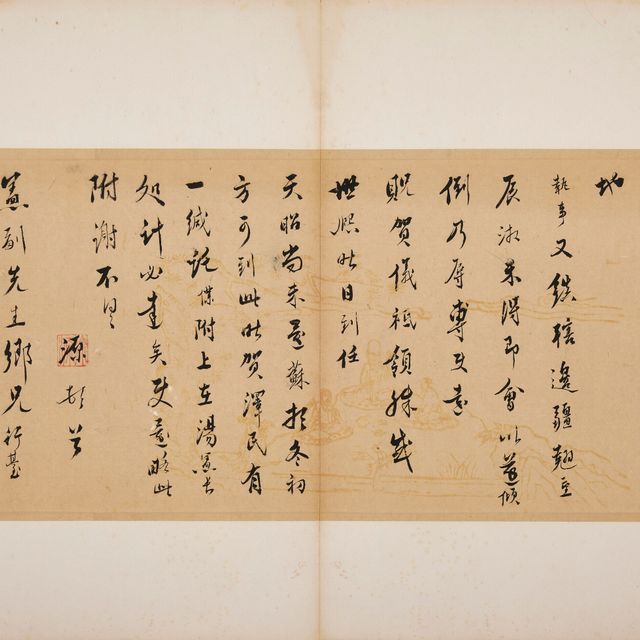 地
執事又鎮轄邊疆翹企
辰渊未得即會以遂傾
倒乃辱專使遠
貺賀儀祗領殊感
世熙昨日到任
天昭尚未還蘇於冬初
方可到此昨賀澤民有
一緘託僕附上在湯憲長
処計必達矣使還略此
附謝不具
源頓首
憲副先生鄉兄行臺